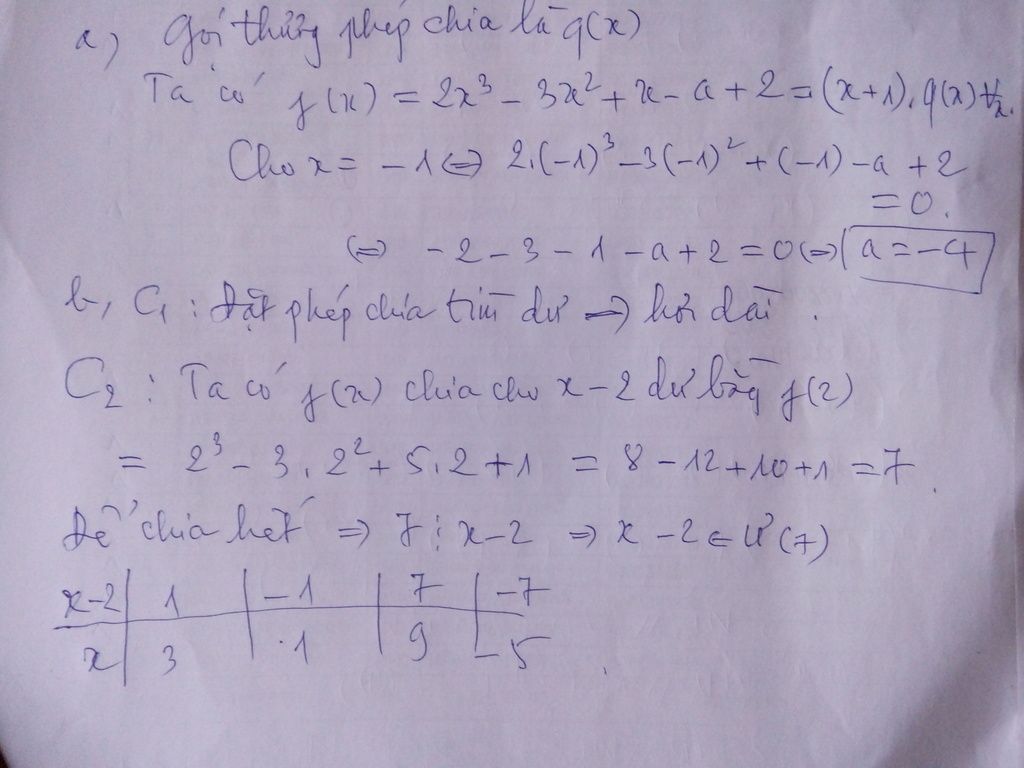 a, Gọi thương phép chia là q(x)
Ta có f(x) = 2x³ - 3x² + x - a + 2 = (x+1). q(x) ∀x.
Cho x = -1 ⇔ 2.(-1)³ - 3(-1)² + (-1) - a + 2
= 0.
⇔ -2 - 3 - 1 - a + 2 = 0 ⇔ a = -4
b, C₁ : Đặt phép chia tìm dư ⇒ hơi dài .
C₂ : Ta có f(x) chia cho x - 2 dư bằng f(2)
= 2³ - 3 . 2² + 5 . 2 + 1 = 8 - 12 + 10 + 1 = 7 .
Để chia hết ⇒ 7 ⋮ x - 2 ⇒ x - 2 ∈ Ư(7)
x-2 | 1 | -1 | 7 | -7
x | 3 | 1 | 9 | -5 .